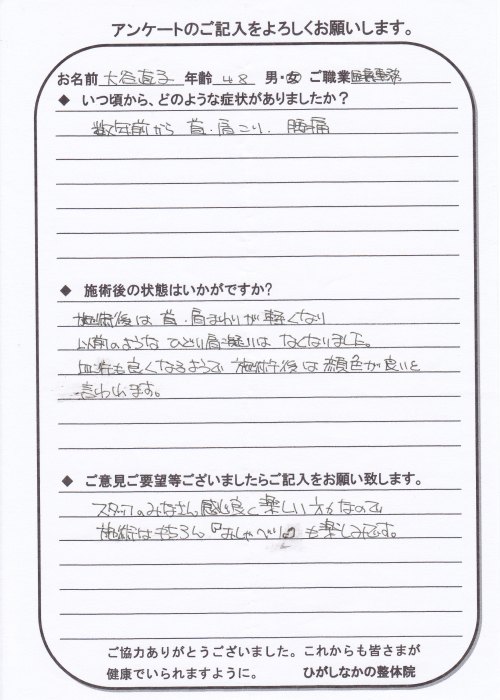 アンケートのご記入をよろしくお願いします。
お名前 大谷直子 年齢 48 男・女 ご職業 医療事務
◆ いつ頃から、どのような症状がありましたか？
数年前から 首・肩こり、腰痛
◆ 施術後の状態はいかがですか？
施術後は首・肩まわりが軽くなり
以前のような ひどい肩凝りは なくなりました。
血流も良くなるようで 施術後は顔色が良いと
言われます。
◆ ご意見ご要望等ございましたらご記入をお願い致します。
スタッフのみなさん感じ良く楽しい方なので
施術はもちろん『おしゃべり』も楽しみです。
ご協力ありがとうございました。これからも皆さまが
健康でいられますように。 ひがしなかの整体院